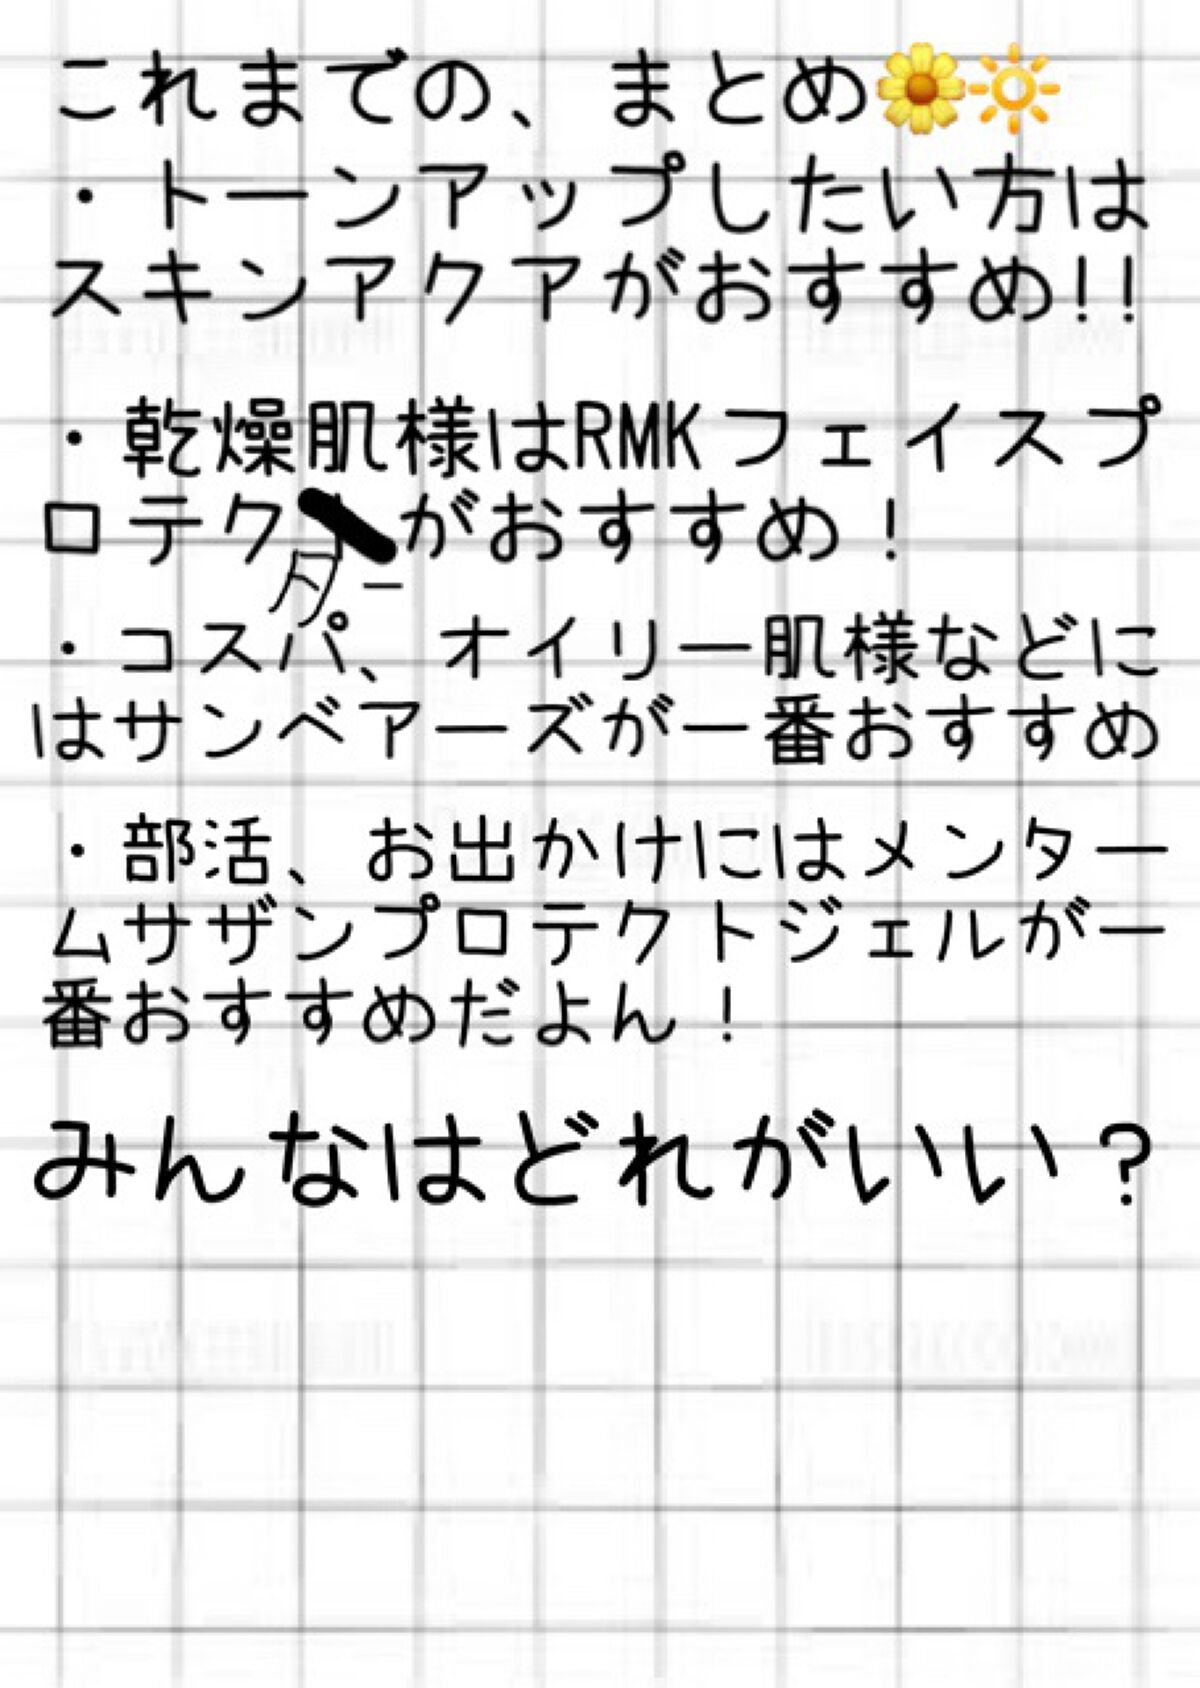 これまでの、まとめ🌼🔆
・トーンアップしたい方は
スキンアクアがおすすめ!!
・乾燥肌様はRMKフェイスプ
ロテクがおすすめ！
ター
・コスパ、オイリー肌様などに
はサンベアーズが一番おすすめ
・部活、お出かけにはメンター
ムサザンプロテクトジェルが一
番おすすめだよん！
みんなはどれがいい？